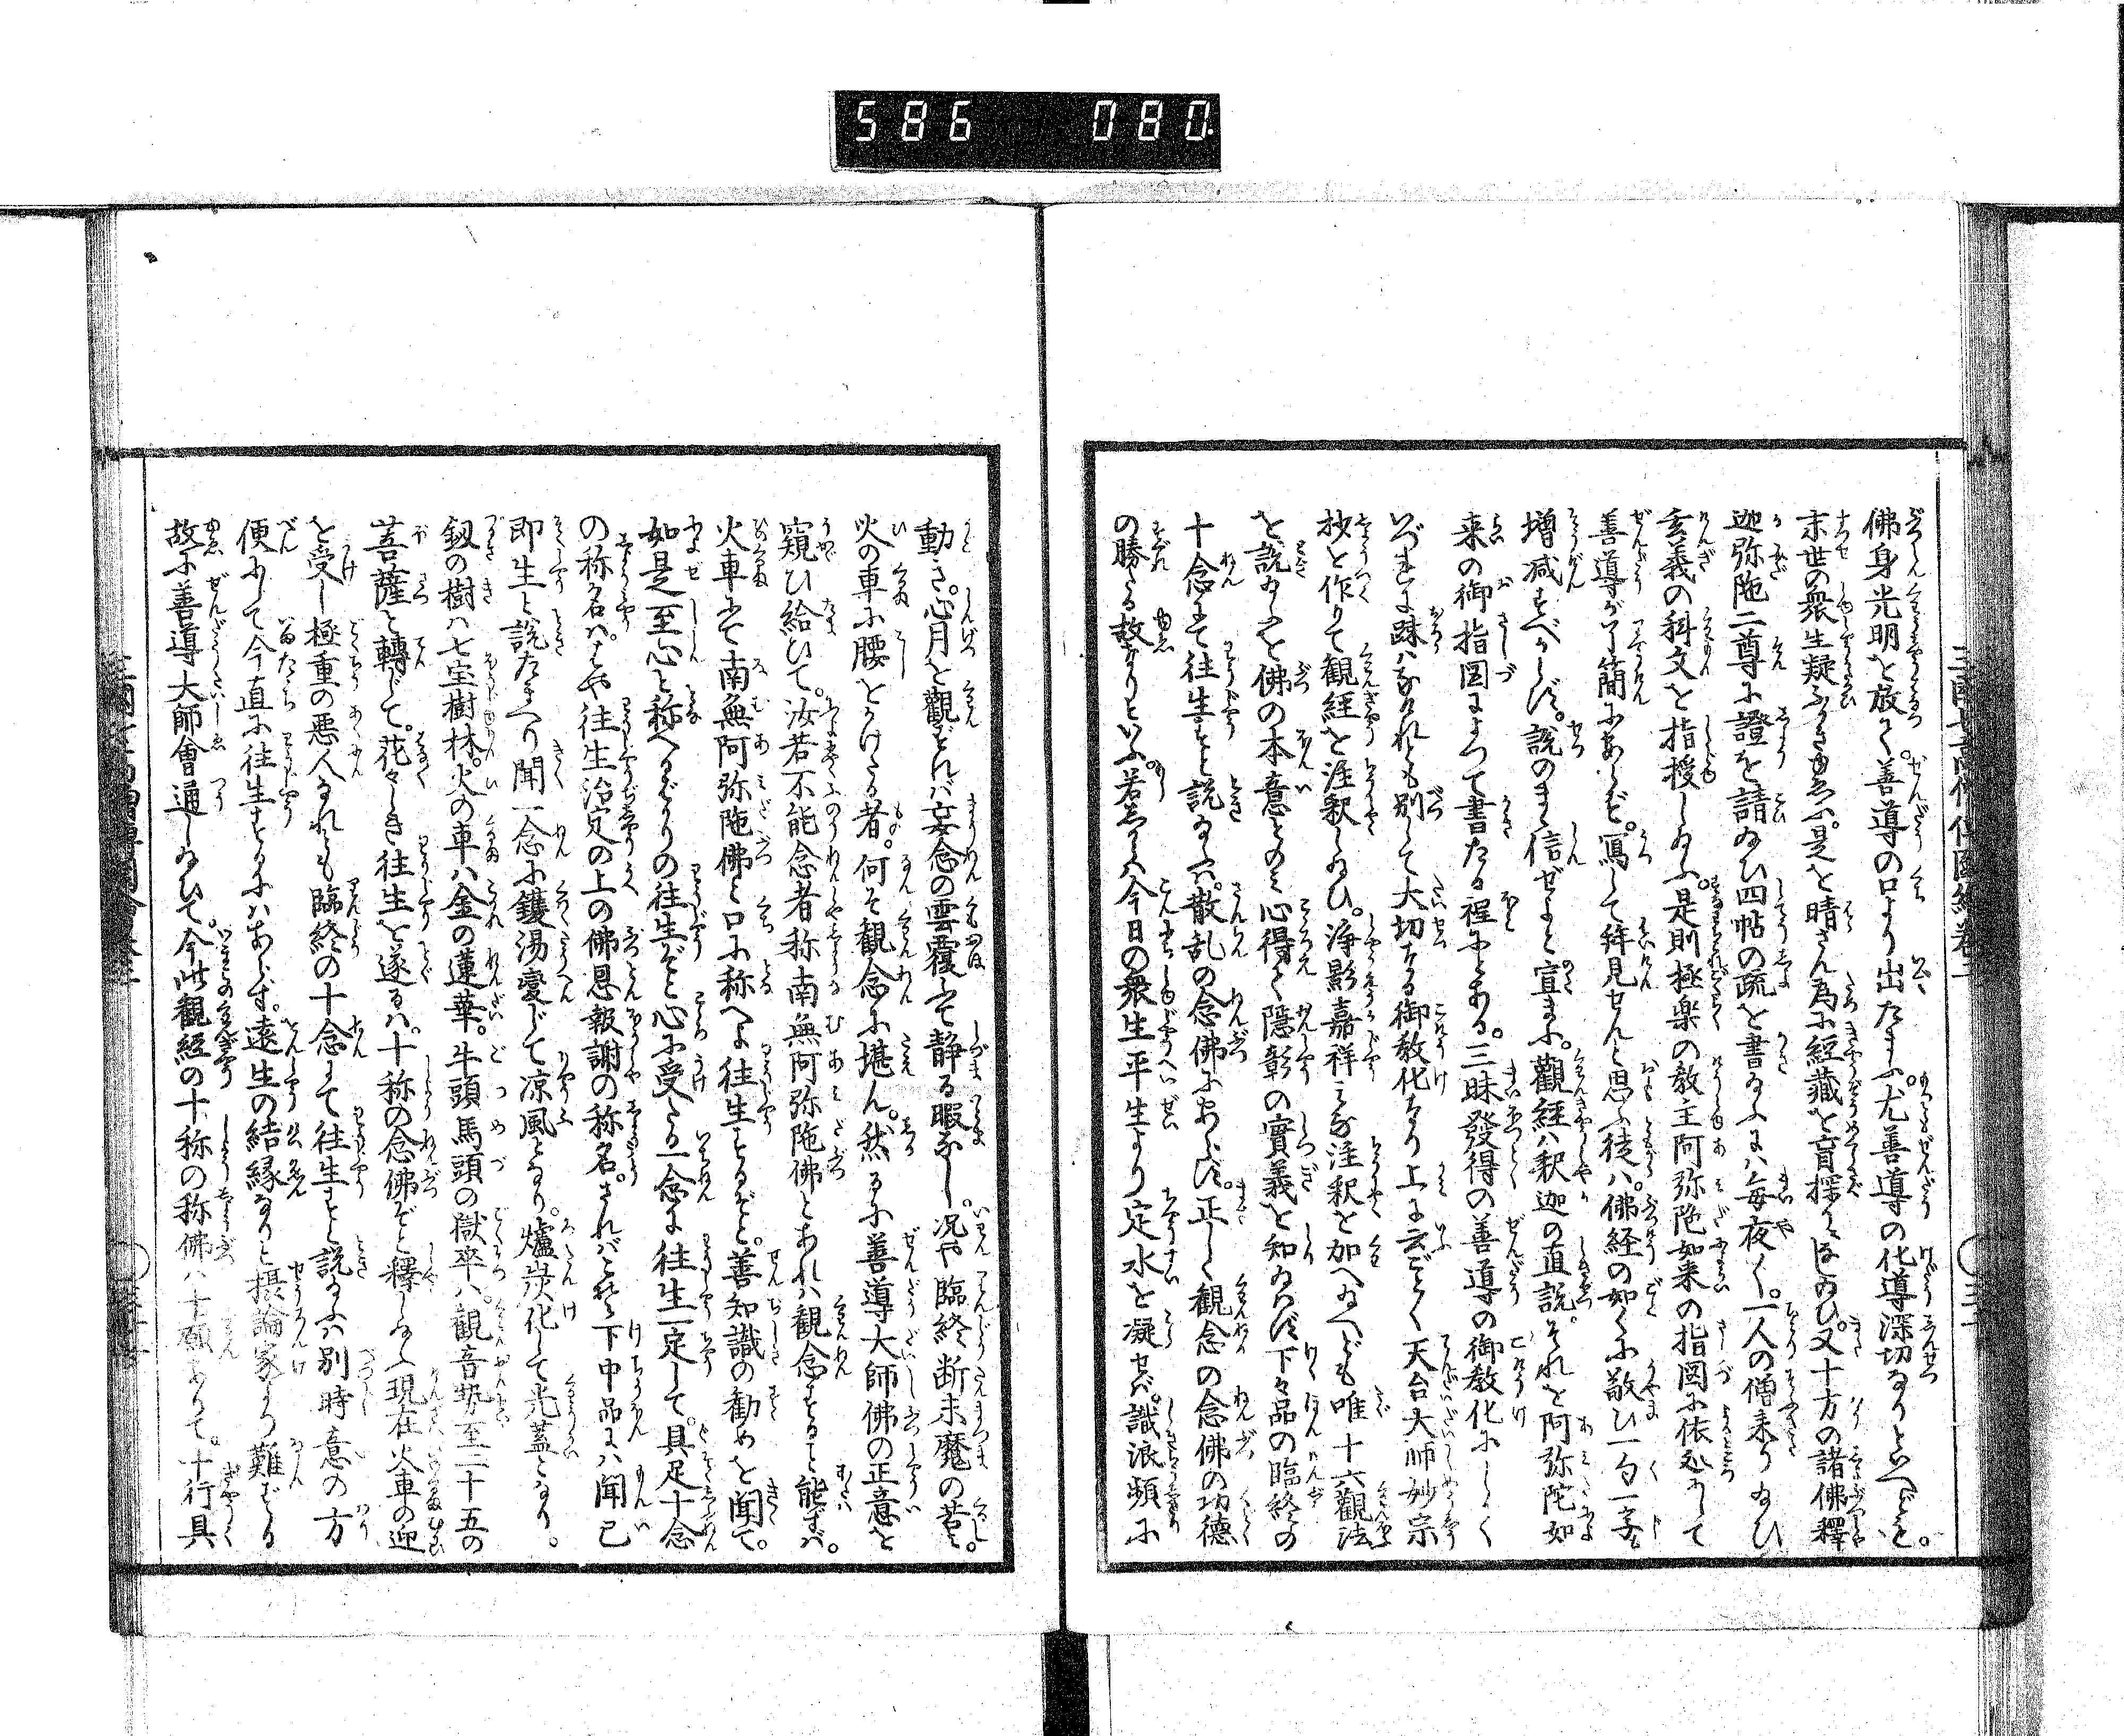 586 080
佛身光明を放く。善導の口より出たまふ。尤善導の化導深切なりといへども。
末世の衆生疑ふかきゆゑふ。是を晴さん為に経藏を盲探りしゐひ。又十方の諸佛釋
迦弥陁二尊に證を請ゐひ四帖の疏を書ゐふには毎夜〱。一人の僧来りゐひ
玄義の科文を指授しゐふ。是則極楽の教主阿弥陁如来の指図に依処にして
善導が了簡にあらず。寫して拜見せんと思ふ徒は。佛経の如くに敬ひ一句一字も
増减すべからず。説のまゝ信ぜよと宣まふ。觀経は釈迦の直説。それを阿弥陀如
来の御指図によつて書たる程にとある。三昧發得の善導の御教化にしく
いづれに踈はなけれども別して大切なる御教化なり上に云ごとく天台大师妙宗
抄を作りて観経を注釈しゐひ。浄影嘉祥みな注釈を加へゐへども唯十六觀法
を説ゐふを佛の本意とのミ心得く隠彰の實義を知ゐはず下々品の臨終の
十念にて往生すと説ゐふハ。散乱の念佛にあらず。正しく観念の念佛の功徳
の勝るゝ故なりといふ。若しからハ今日の衆生平生より定水を凝せば。識浪頻に
動き。心月を觀ずれは妄念の雲覆ふて静る暇なし。况や臨終断末魔の苦ミ。
火の車に腰をかけたる者。何ぞ観念に堪ん。然るに善導大師佛の正意を
窺ひ給ひて。汝若不能念者称南無阿弥陁佛とあれハ観念すること能ずバ。
火車にて南無阿弥陁佛と口に称へよ往生するぞと。善知識の勧めを聞て。
如是至心と称へるばかりの往生ぞと心に受たる一念に往生一定して。具足十念
の称名ハ。はや往生治定の上の佛恩報謝の称名。さればこそ下中品には聞已
即生と説たまへり聞一念に鑊湯變じて凉風となり。爐炭化して光蓋となり。
釼の樹ハ七宝樹林。火の車ハ金の蓮華。牛頭馬頭の獄卒ハ。観音勢至二十五の
菩薩と轉じて。花々しき往生を遂るハ。十称の念佛ぞと釋しゐふ現在火車の迎
を受し極重の悪人なれども臨終の十念にて往生すと説ゐふハ別時意の方
便にして今直に往生するにハあらず。遠生の結縁なりと摂論家より難ずる
故に善導大師會通しゐひて。今此観経の十称の称佛ハ十願ありて。十行具